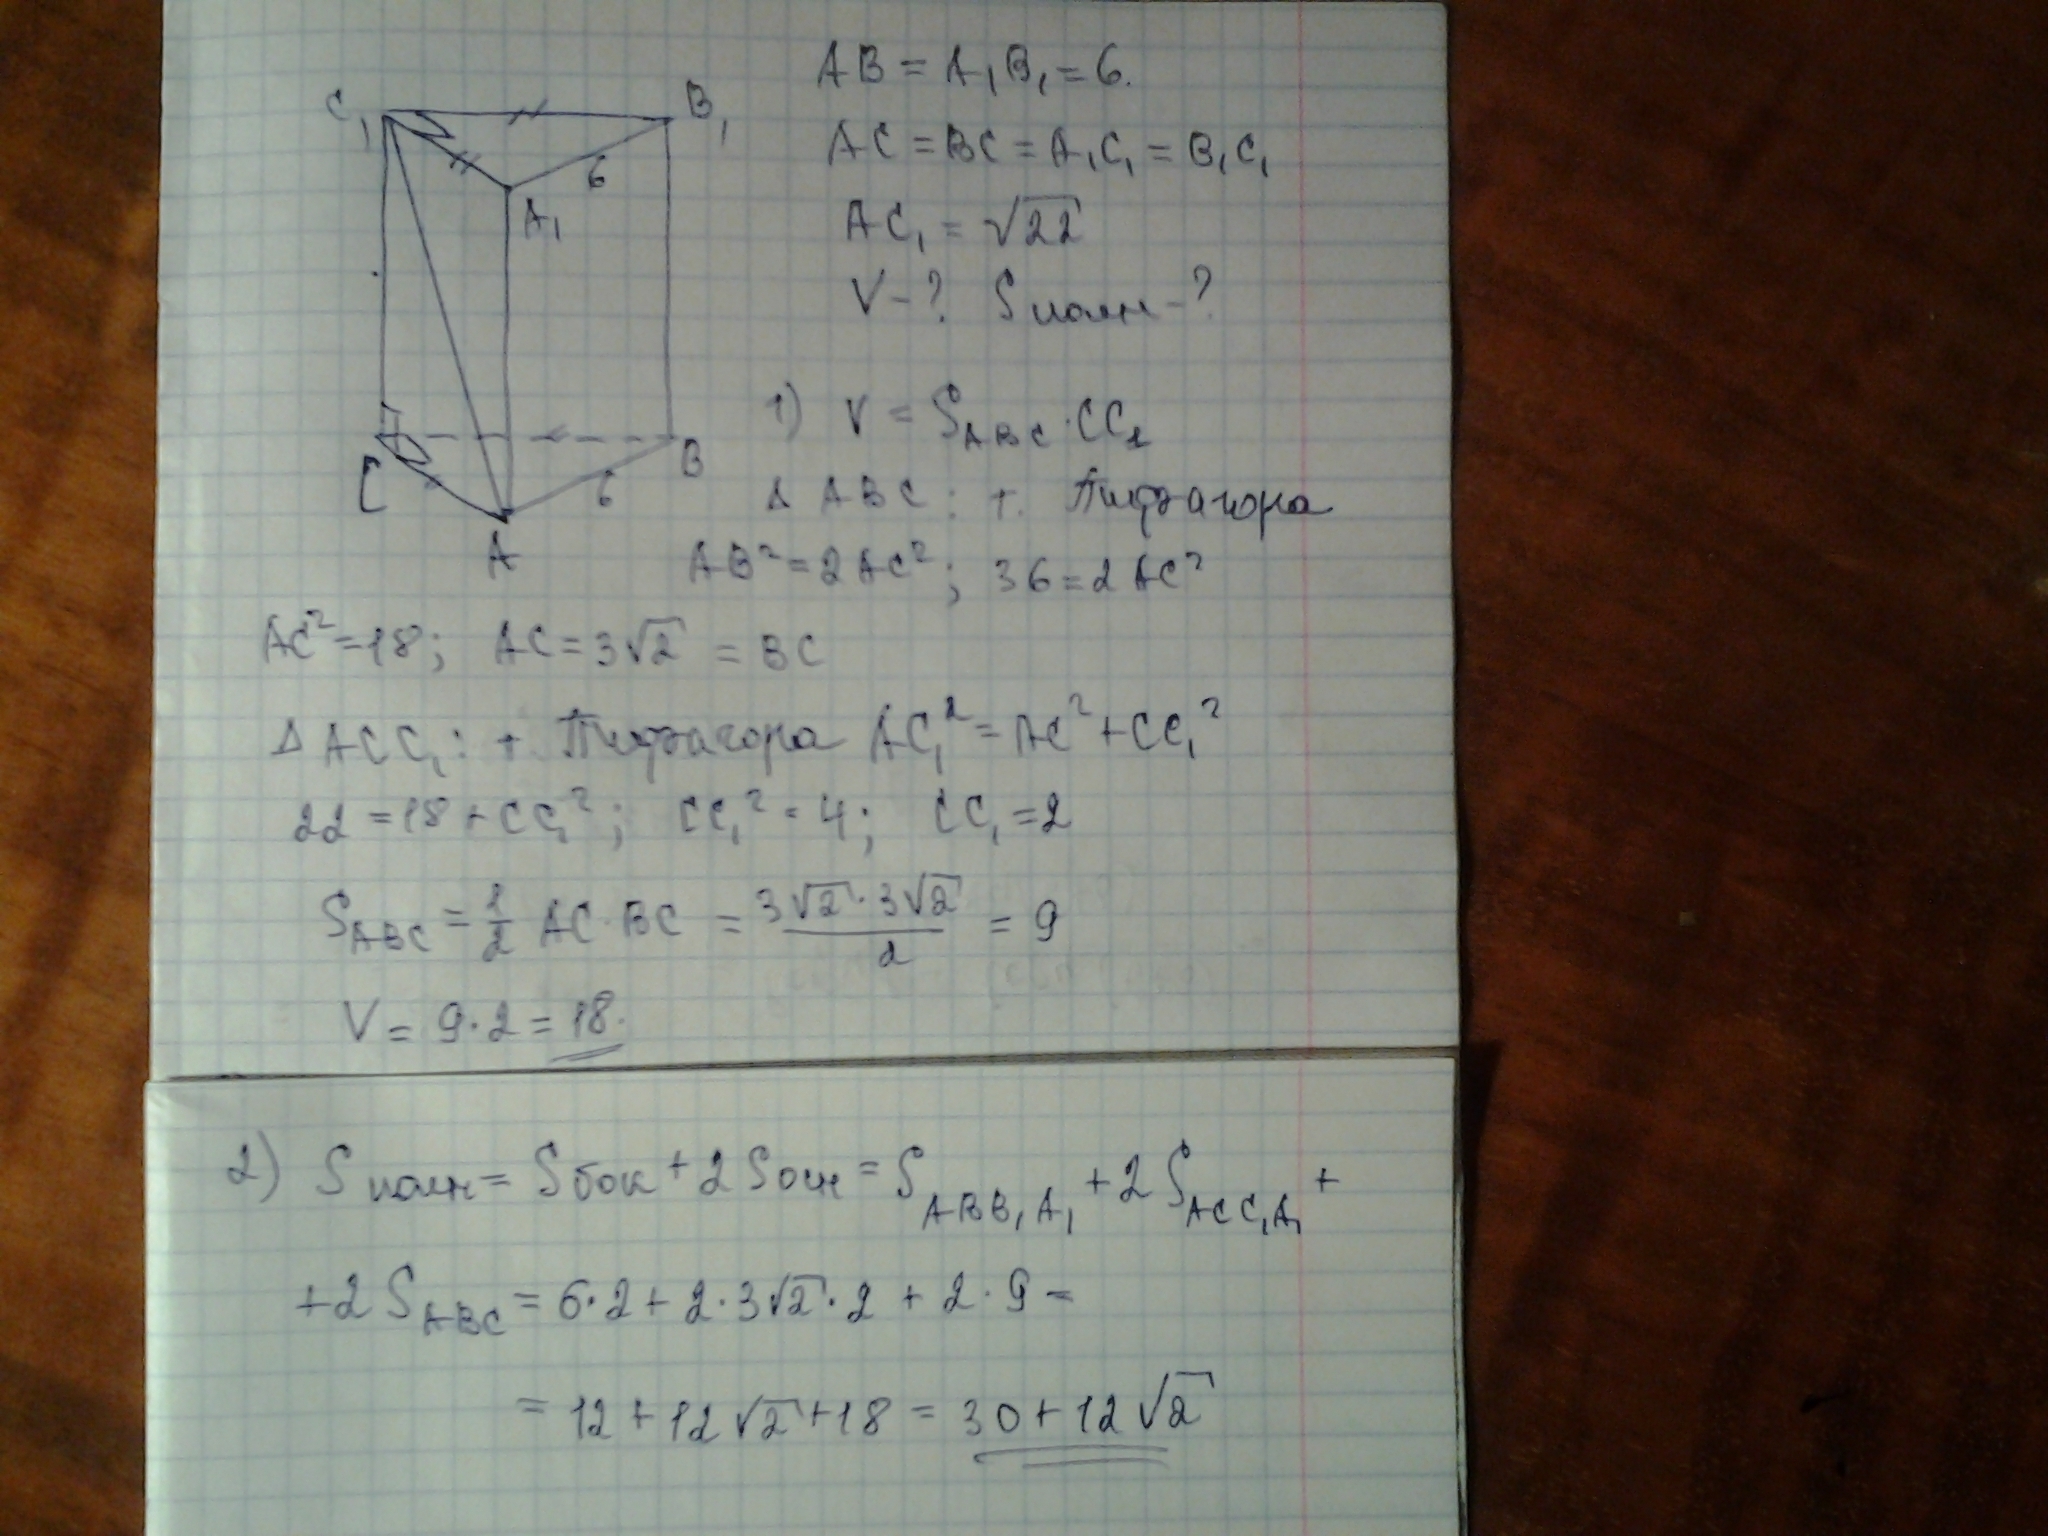 AB = A₁B₁ = 6.
AC = BC = A₁C₁ = B₁C₁
AC₁ = √22
V - ? Sполн - ?
C₁
B₁
6
A₁
C
B
6
A
1) V = S_ABC · CC₁
Δ ABC: т. Пифагора
AB² = 2AC²; 36 = 2AC²
AC² = 18; AC = 3√2 = BC
Δ ACC₁: т. Пифагора AC₁² = AC² + CC₁²
22 = 18 + CC₁²; CC₁² = 4; CC₁ = 2
S_ABC = 1/2 AC · BC = (3√2 · 3√2)/2 = 9
V = 9 · 2 = 18.
2) Sполн = Sбок + 2Sосн = S_ABB₁A₁ + 2S_ACC₁A₁ +
+ 2S_ABC = 6 · 2 + 2 · 3√2 · 2 + 2 · 9 =
= 12 + 12√2 + 18 = 30 + 12√2